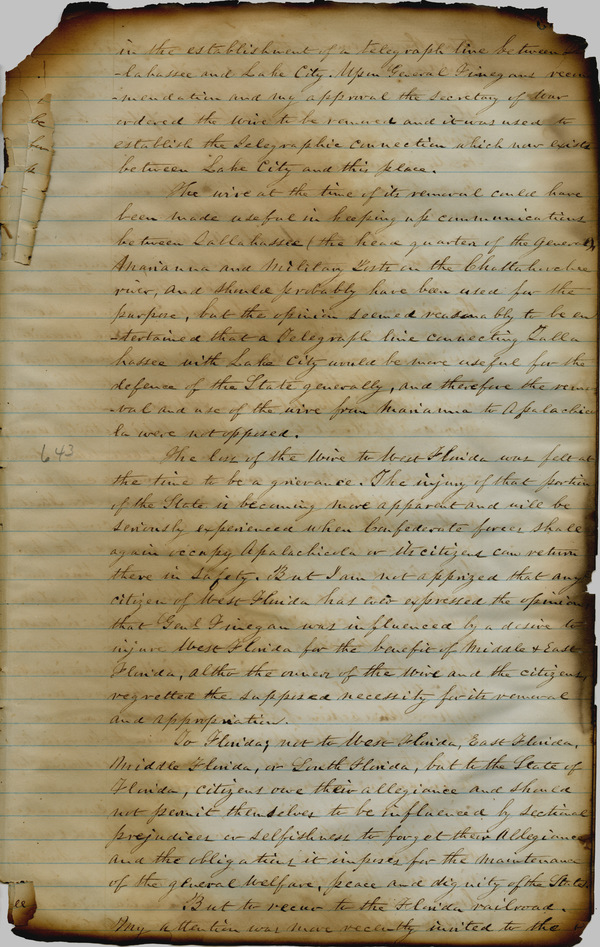 in the establishment of a telegraph line between
-lahassee and Lake City. Upon General Finegans recom
mendation and my approval the Secretary of War
ordered the wire to be removed and it was used to
establish the Telegraphic connection which now exists
between Lake City and this place.
The wire at the time of its removal could have
been made useful in keeping up communications
between Tallahassee (the head quarter of the General)
Marianna and Military Posts on the Chattahoochee
river, and should probably have been used for the
purpose, but the opinion seemed reasonably to be en
-tertained that a Telegraph line connecting Talla
hassee with Lake City would be more useful for the
defence of the State generally, and therefore the remo
-val and use of the wire from Marianna to Apalachico
la were not opposed.
643
The loss of the Wire to West Florida was felt at
the time to be a grievance. The injury of that portion
of the State is becoming more apparent and will be
seriously experienced when Confederate forces shall
again occupy Apalachicola or its citizens can return
there in safety. But I am not apprized that any
citizen of West Florida has ever expressed the opinion
that Genl Finegan was influenced by a desire to
injure West Florida for the benefit of Middle & East
Florida, altho the owners of the Wire and the citizens,
regretted the supposed necessity for its removal
and appropriation.
To Florida; not to West Florida, East Florida,
Middle Florida, or South Florida, but to the State of
Florida, citizens owe their allegiance and should
not permit themselves to be influenced by sectional
prejudices or selfishness to forget their Allegiance
and the obligations it imposes for the maintenance
of the general Welfare, peace and dignity of the State.
But to recur to the Florida railroad.
My attention was more recently invited to the